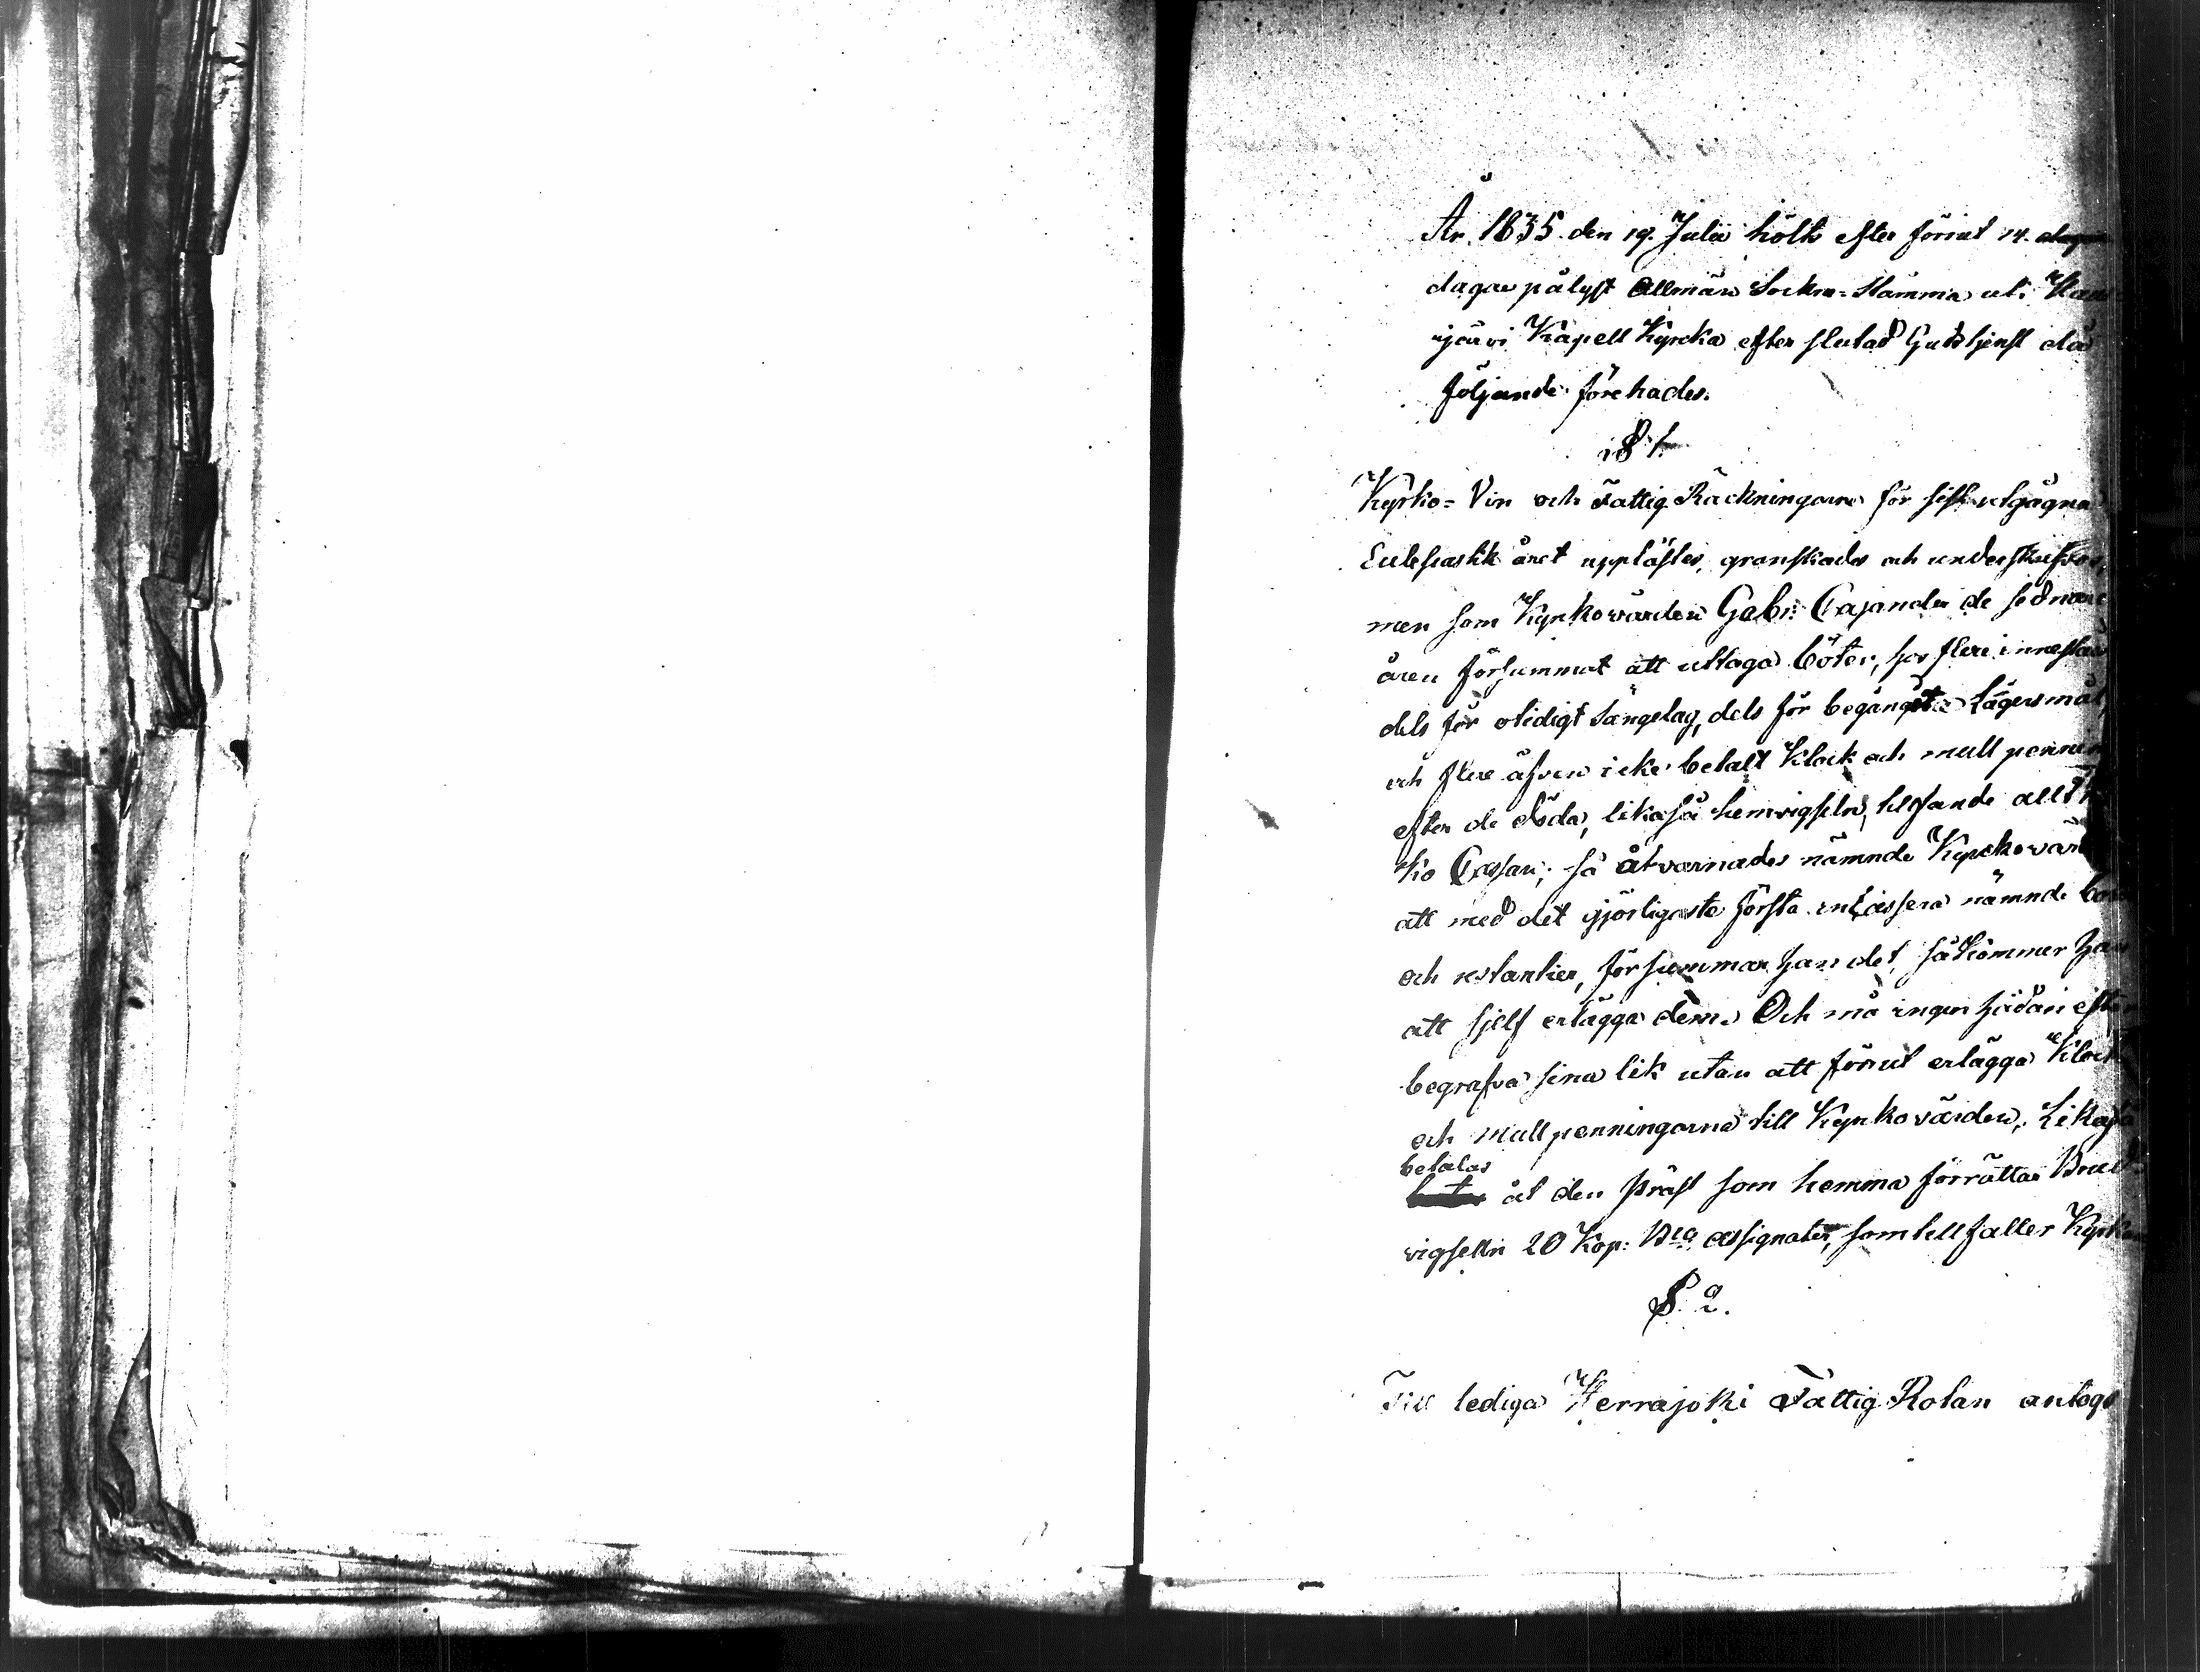 År 1835 den 19. Julii hölts efter förrut 14. dagar
dagar pålyst Allmän Sockne-Stämma uti
ijärvi Kapell Kyrcka efter slutad Gudstjenst då
följande förehades.
§ 1.
Kyrko- Vin och Fattig Räckningarne för sist utgågna
Eclesiastik året upplästes, granskades och underskrefvos,
men som Kyrkovärden Gabr: Cajander de sednare
åren försummat att uttaga böter, hos flere innestå
dels för otidigt sängelag, dels för begångst Lägersmål,
och flere äfven icke betalt Klock och mull pennin
efter de döda, likaså hemvigseln, tilfsande allt
ko Cassan; så åtvarnades nämnde Kyrckovärd
att med det gjörligaste första incassera nämnde
och restantier, försummar han det, så kommer han
att sjelf erlägga dem. Och må ingen hädan efter
begrafva sina lik utan att förrut erlägga Klock
och mullpenningarna till Kyrkovärden, Likaså
betalas
åt den präst som hemma förrättar Brud
vigseln 20 Kop: Bco assignater, som tillfaller Kyrk
§ 2.
Till lediga Herrajoki Fattig Rotan antogs